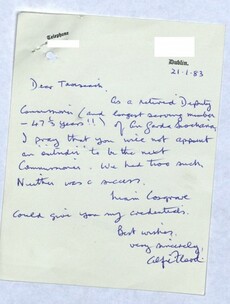 Telephone
Dublin.
21.1.83
Dear Taoiseach,
As a retired Deputy
Commissioner (and longest serving member
– 47½ years!!) of An Garda Siochana,
I pray that you will not appoint
an "outsider" to be the next
Commissioner. We had two such.
Neither was a success.
Liam Cosgrave
could give you my credentials.
Best wishes,
very sincerely,